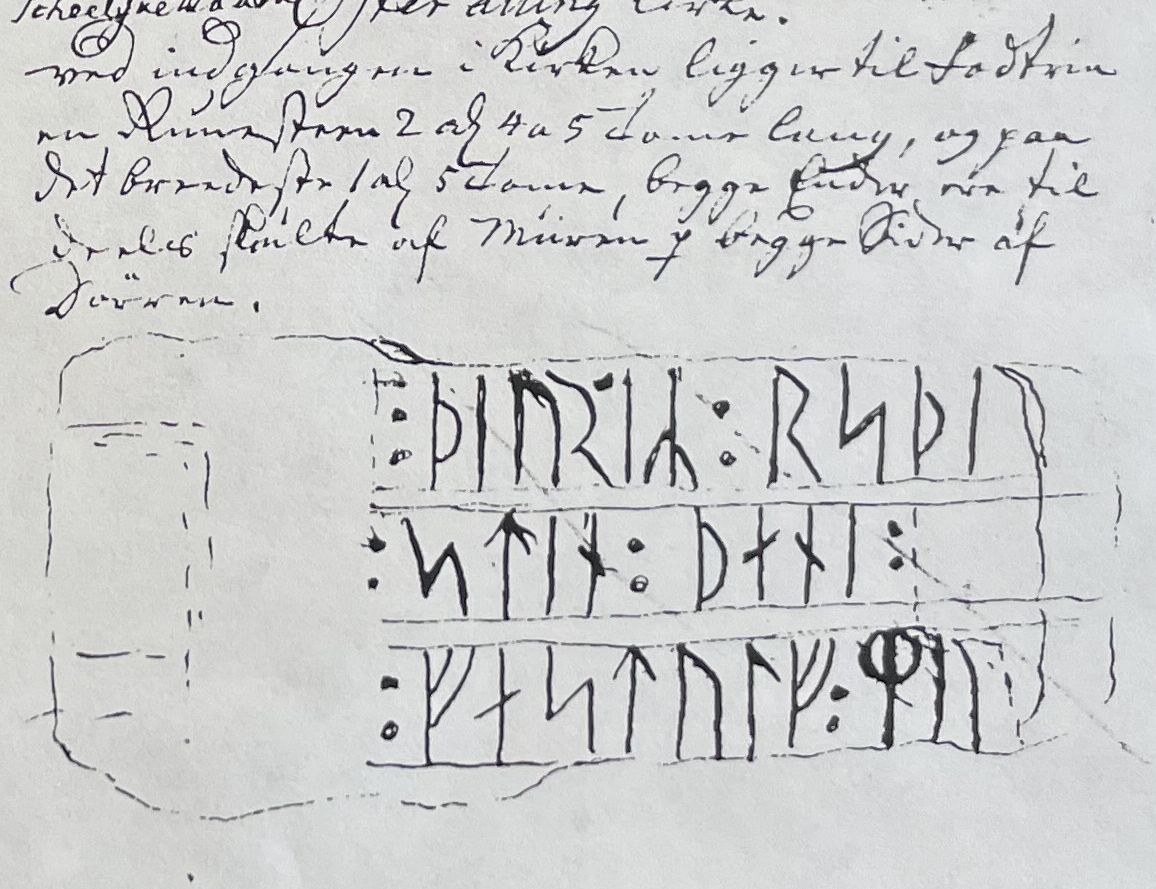 Öster alling Kirke.
ved indgangen i Kirken ligger til fodtrin
en Runesteen 2 al 4 a 5 Tome lang, og paa
det breedeste 1 al 5 Tome, begge Ender ere til
deels skiulte af Muren p begge Sider af
Dörren.
: ᚦᛁᚢᚱᛁᛦ : ᚱᛋᚦᛁ
: ᛋᛏᛁᚾ : ᚦᛅᚾᛁ :
: ᚠᛅᛋᛏᚢᛚᚠ : ᛘᛁᚢ